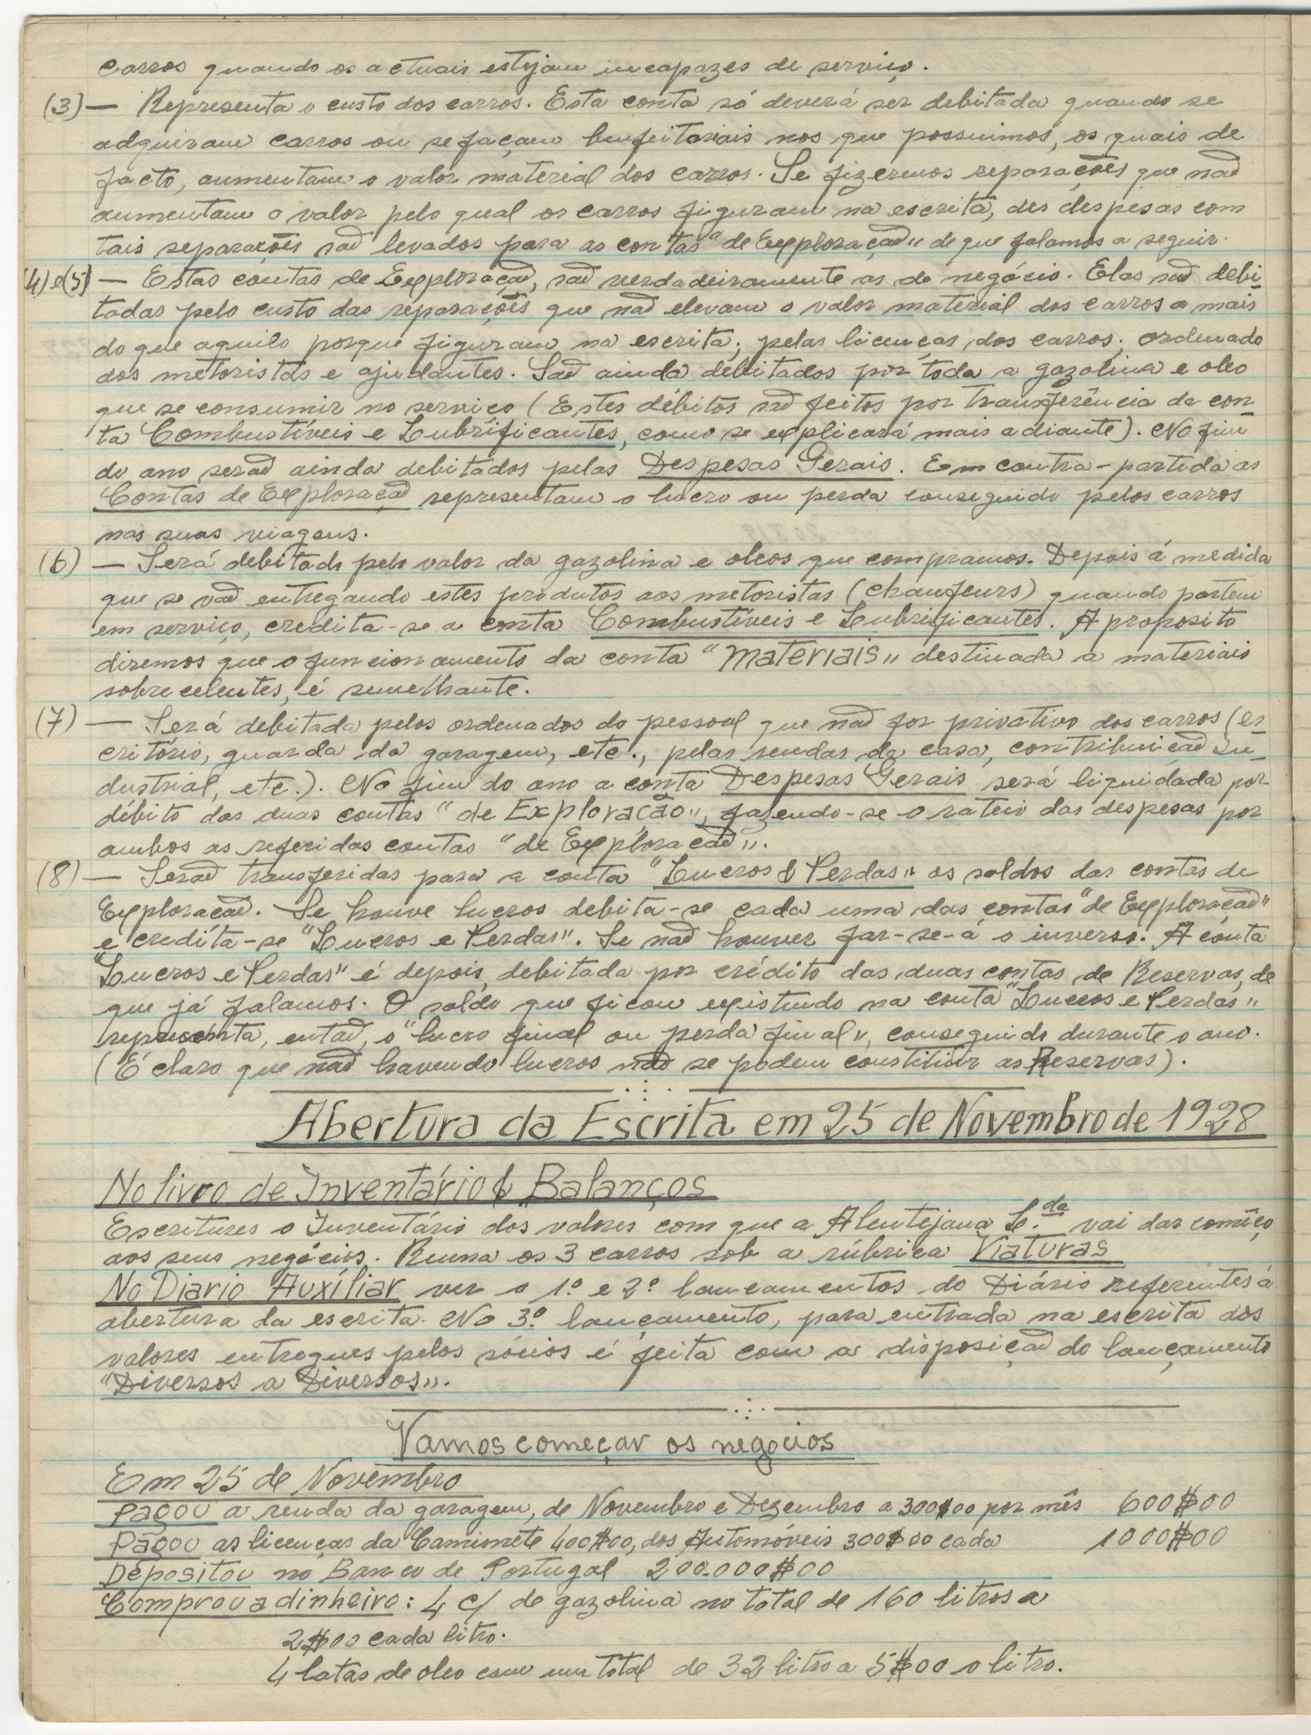 carros quando os actuais estejam incapazes de serviço.
(3) — Representa o custo dos carros. Esta conta só deverá ser debitada quando se
adquiram carros ou se façam benfeitoriais nos que possuimos, os quais de
facto, aumentam o valor material dos carros. Se fizermos reparações que não
aumentam o valor pelo qual os carros figuram na escrita, des despesas com
tais reparações são levados para as contas "de Exploração" de que falamos a seguir.
(4) e (5) — Estas contas de Exploração, são verdadeiramente as do negócio. Elas são debi-
tadas pelo custo das reparações que não elevam o valor material dos carros a mais
do que aquilo porque figuram na escrita; pelas licenças dos carros; ordenado
dos motoristas e ajudantes. São ainda debitados por toda a gazolina e oleo
que se consumir no serviço (Estes débitos são feitos por transferência da con-
ta Combustíveis e Lubrificantes, como se explicará mais adiante). No fim
do ano serão ainda debitados pelas Despesas Gerais. Em contra-partida as
Contas de Exploração representam o lucro ou perda conseguido pelos carros
nas suas viagens.
(6) — Será debitado pelo valor da gazolina e oleos que compramos. Depois á medida
que se vão entregando estes produtos aos motoristas (chaufeurs) quando partem
em serviço, credita-se a conta Combustíveis e Lubrificantes. A proposito
diremos que o funcionamento da conta "Materiais" destinada a materiais
sobrecelentes, é semelhante.
(7) — Será debitada pelos ordenados do pessoal que não for privativo dos carros (es-
critório, guarda da garagem, etc., pelas rendas da casa, contribuição In-
dustrial, etc.). No fim do ano a conta Despesas Gerais será liquidada por
débito das duas contas "de Exploração", fazendo-se o rateio das despesas por
ambos as referidas contas "de Exploração".
(8) — Serão transferidas para a conta "Lucros & Perdas" os saldos das contas de
Exploração. Se houve lucros debita-se cada uma das contas "de Exploração"
e credita-se "Lucros e Perdas". Se não houver far-se-á o inverso. A conta
"Lucros e Perdas" é depois, debitada por crédito das duas contas de Reservas, de
que já falamos. O saldo que ficou existindo na conta "Lucros e Perdas"
representa, então, o "lucro final ou perda final", conseguido durante o ano.
(É claro que não havendo lucros não se podem constituir as Reservas).
Abertura da Escrita em 25 de Novembro de 1928
No livro de Inventário & Balanços
Escritures o Inventário dos valores com que a Alentejana L.da vai dar comêço
aos seus negócios. Reuna os 3 carros sob a rúbrica Viaturas
No Diario Auxíliar ver o 1º e 2º lançamentos do Diário referentes á
abertura da escrita. No 3º lançamento, para entrada na escrita dos
valores entregues pelos sócios é feita com a disposição do lançamento
"Diversos a Diversos".
Vamos começar os negocios
Em 25 de Novembro
Pagou a renda da garagem, de Novembro e Dezembro a 300$00 por mês 600$00
Pagou as licenças da Camionete 400$00, dos Automóveis 300$00 cada 1000$00
Depositou no Banco de Portugal 200.000$00
Comprou a dinheiro: 4 c/ de gazolina no total de 160 litros a
2$00 cada litro.
4 latas de oleo com um total de 32 litro a 5$00 o litro.